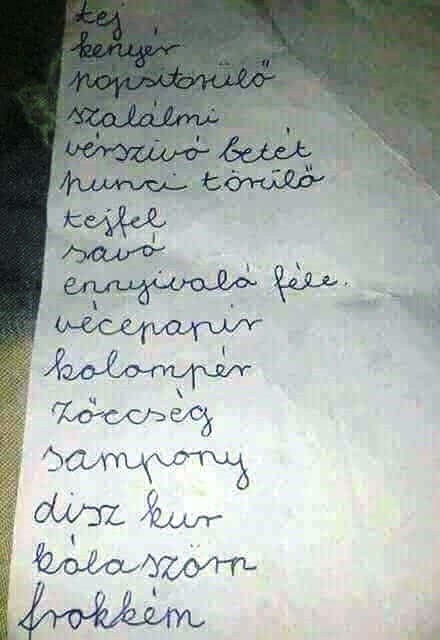 tej
kenyér
popsitörülő
szalálmi
vérszivó betét
punci törülő
tejfel
savó
ennyivaló féle.
vécepapir
kolompér
zőccség
sampony
disz kur
kólaszörp
frokkém